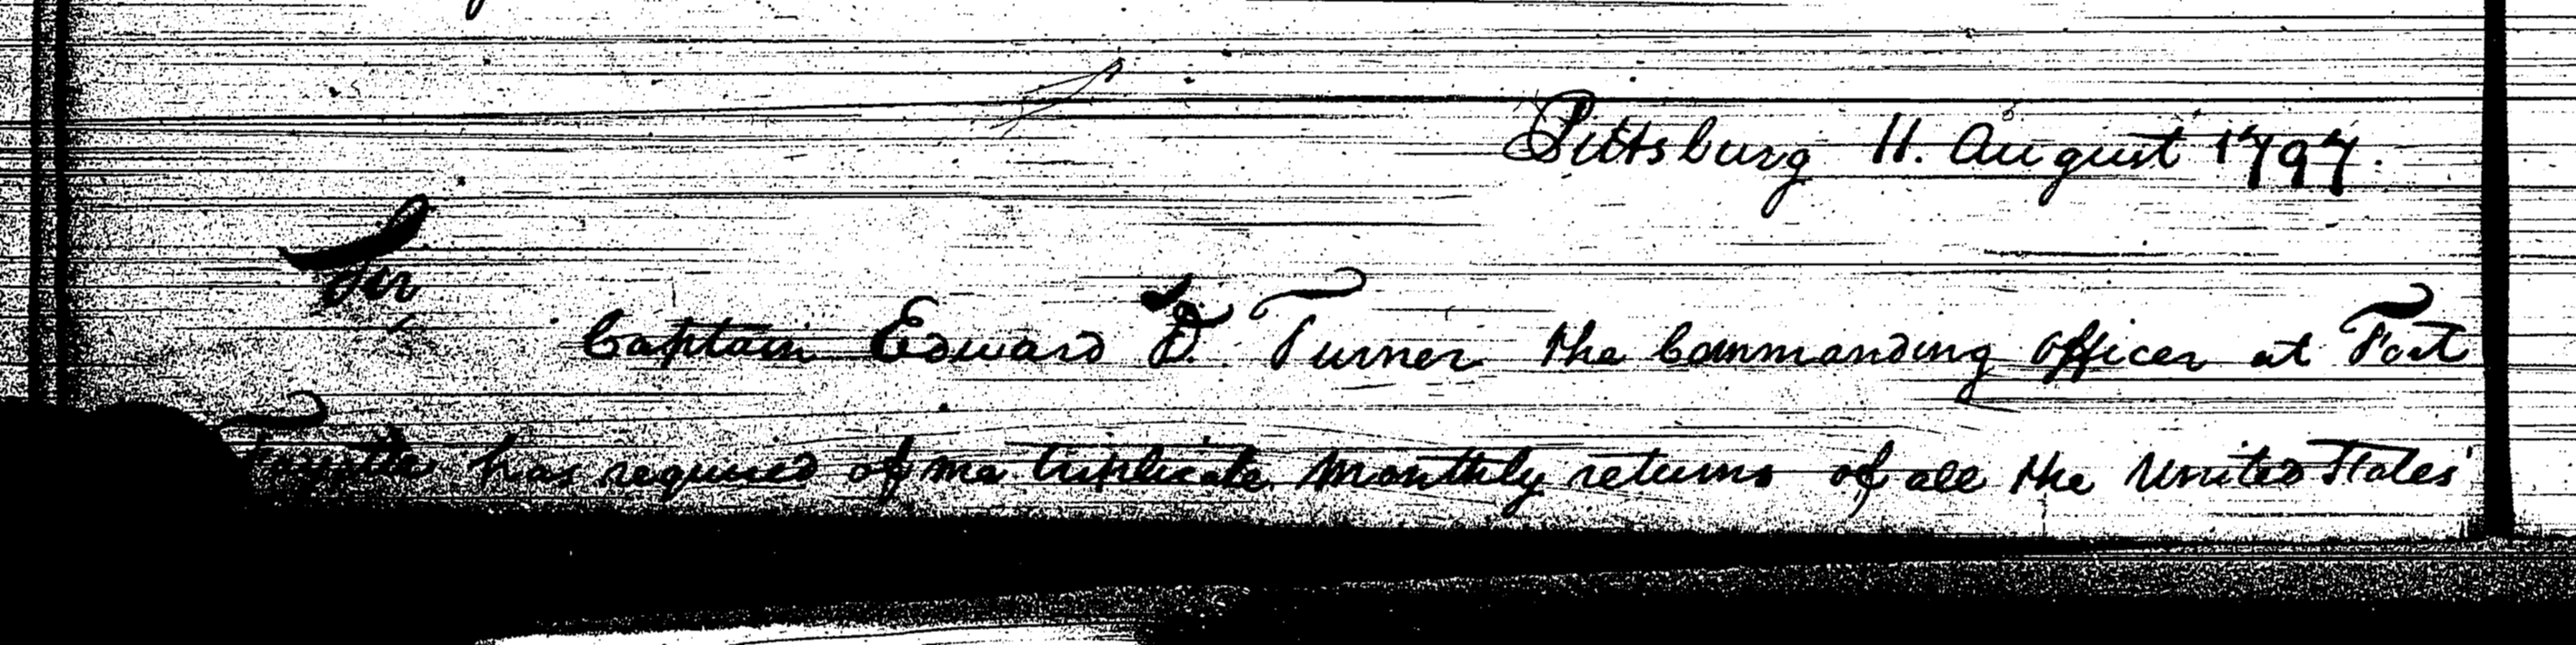 Pittsburg 11. August 1797.
Sir
Captain Edward D. Turner the Commanding officer at Fort
Fayette has required of me triplicate monthly returns of all the United States'